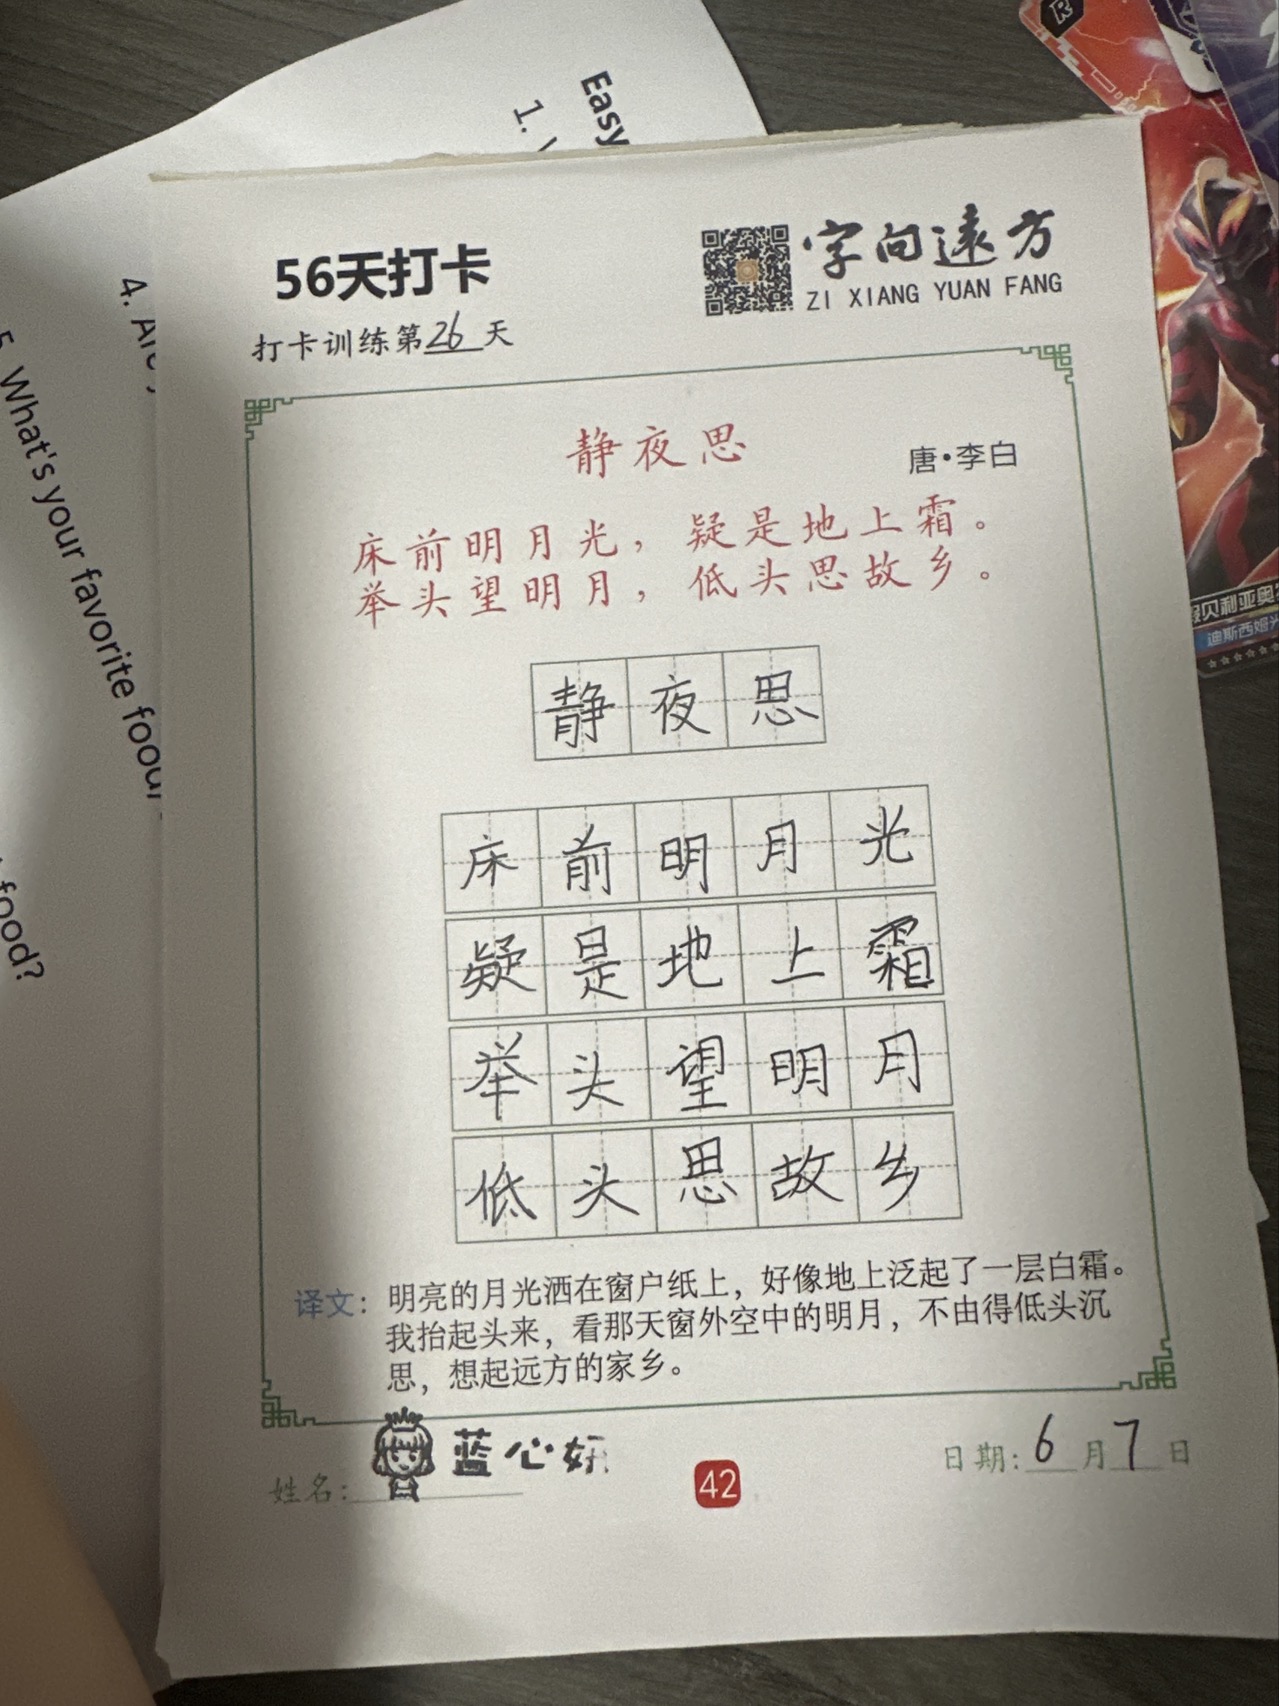 Easy
1.
4. Are
5. What's your favorite food?
food?
R
56天打卡
字向远方
ZI XIANG YUAN FANG
打卡训练第26天
静夜思
唐·李白
床前明月光，疑是地上霜。
举头望明月，低头思故乡。
静夜思
床前明月光
疑是地上霜
举头望明月
低头思故乡
译文：明亮的月光洒在窗户纸上，好像地上泛起了一层白霜。
我抬起头来，看那天窗外空中的明月，不由得低头沉
思，想起远方的家乡。
姓名：蓝心妍
42
日期：6月7日
贝利亚奥
迪斯西姆光